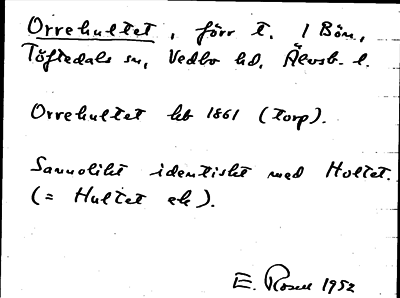 Orrehultet, förr t. 1 Bön,
Töftedals sn, Vedbo hd, Älvsb. l.
Orrehultet hb 1861 (torp).
Sannolikt identiskt med Hultet.
(= Hultet ek).
E. Rosell 1952